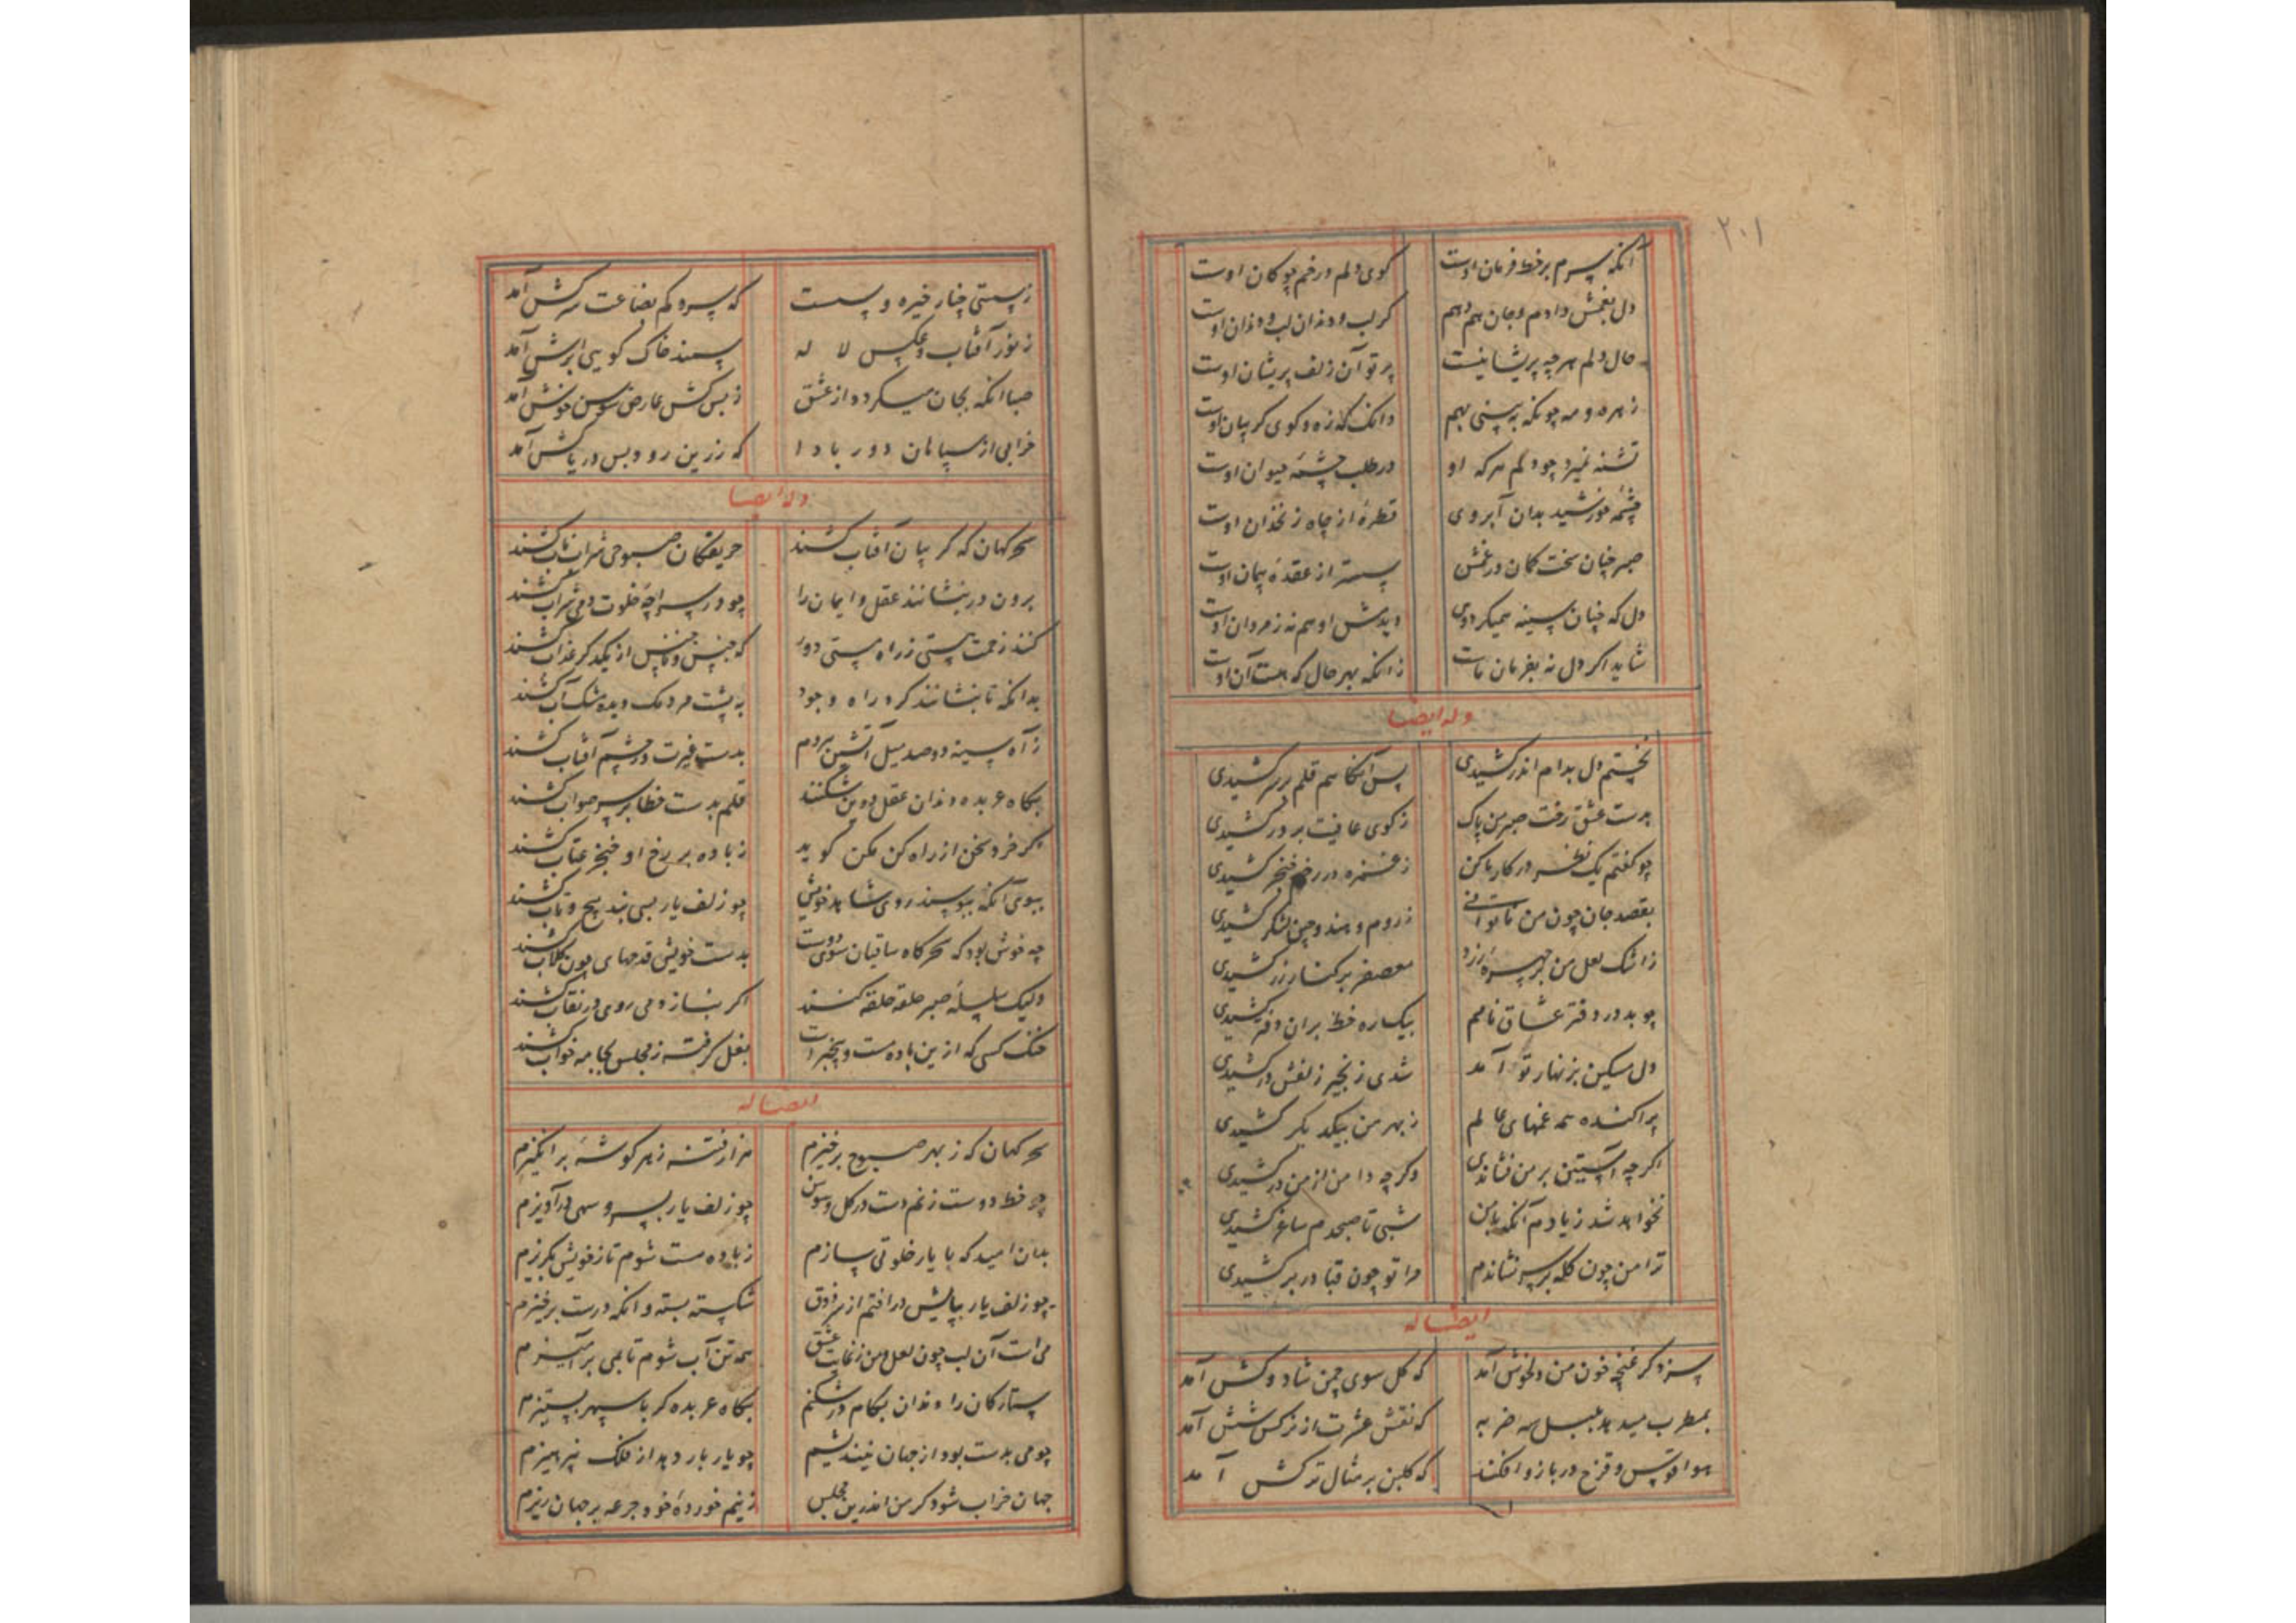 ۲۰۱
آنکه سرم بر خط فرمان اوست کوی دلم در خم چوکان اوست
دل بغمش دادم و جان هم دهم کر لب و دندان لب و دندان اوست
حال دلم هرچه پریشانیست پرتو آن زلف پریشان اوست
زهره و مه چونکه به بینی بهم دانک که زه و کوی کریبان اوست
تشنه نمیرد چو دلم هرکه او در طلب چشمهٔ حیوان اوست
چشمه خورشید بدان آبروی قطرهٔ از چاه زنخدان اوست
صبر چنان سخت کمان در غمش از عقدهٔ پیمان اوست
دل که چنان سینه همیکردی دیدمش او هم نه ز مردان اوست
شاید اکر دل نه بفرمان ماست زانکه بهر حال که هست آن اوست
وله ایضا
نخستم دل بدام اندر کشیدی پس آنکاهم قلم بر سر کشیدی
بدست عشق رخت صبر من پاک ز کوی عافیت بر در کشیدی
چو کفتم یک نظر در کار ما کن ز غمزه در رخم خنجر کشیدی
بقصد جان چون من ناتوانی ز روم و هند و چین لشکر کشیدی
ز اشک لعل من بر چهرهٔ زرد معصفر بر کنار زر کشیدی
چو بد در دفتر عشاق نامم بیکباره خط بران دفتر کشیدی
دل مسکین بزنهار تو آمد شدی زنجیر زلفش در کشیدی
پراکنده همه غمهای عالم ز بهر من بیکدیکر کشیدی
اکرچه آستین بر من فشاندی وکرچه دامن از من در کشیدی
نخواهد شد ز یادم آنکه با من شبی تا صبحدم ساغر کشیدی
ترا من چون کله بر سر نشاندم مرا تو چون قبا در بر کشیدی
ایضا له
سزد کر غنچه خون من دلخوش آمد که کل سوی چمن شاد و کش آمد
بمطرب میدهد بلبل سه ضربه که نقش عشرت از نرکس شش آمد
هوا قوس و قزح در بازو افکند که کلبن بر مثال ترکش آمد
ز پستی چنار خیره و پست که سرو کم بضاعت سرکش آمد
ز نور آفتاب و عکس لاله سمند خاک کویی ابرش آمد
صبا آنکه بجان میکردد از عشق ز بس کش عارض سوسن خوش آمد
خرابی از سپاهان دور بادا که زرین رود بس دریاکش آمد
وله ایضا
سحرکهان که کریبان آفتاب کشند حریفکان صبوحی شراب ناب کشند
برون در بنشانند عقل و ایمان را چو در سراچهٔ خلوت دمی شراب کشند
کنند زحمت هستی ز راه مستی دور که جنس و ناجنس از یکدکر عذاب کشند
بدانکه تا بنشانند کرد راه وجود به پشت مردمک دیده مشک آب کشند
ز آه سینه دو صد میل آتشین هر دم بدست غیرت در چشم آفتاب کشند
بکاه عربده دندان عقل و دین شکنند قلم بدست خطا بر سر صواب کشند
اکر خرد سخن از راه کن مکن کوید ز باده بر رخ او خنجر عتاب کشند
ببوی آنکه ببوسند روی شاهد خویش چو زلف یار بسی بند پیچ و تاب کشند
چه خوش بود که سحرکاه ساقیان سوی دوست بدست خویش قدحهای چون کلاب کشند
ولیک سلسلهٔ صبر حلقه حلقه کنند اکر بناز دمی روی در نقاب کشند
خنک کسی که ازین باده مست و بیخبر است بغل کرفته ز مجلس بجامه خواب کشند
ایضا له
سحرکهان که ز بهر صبوح برخیزم هزار فتنه ز هر کوشهٔ برانکیزم
چو خط دوست زنم دست در کل و سوسن چو زلف یار بسرو سهی درآویزم
بدان امید که با یار خلوتی سازم ز باده مست شوم تا ز خویش بکریزم
چو زلف یار بپایش درافتم از سر ذوق شکسته بسته و آنکه درست برخیزم
می است آن لب چون لعل و من ز غایت عشق همه تن آب شوم تا بمی برآمیزم
ستارکان را دندان بکام در شکنم بکاه عربده کر با سپهر بستیزم
چو می بدست بود از جهان نیندیشم چو یار بار دهد از فلک نپرهیزم
جهان خراب شود کر من اندرین مجلس ز نیم خوردهٔ خود جرعه بر جهان ریزم